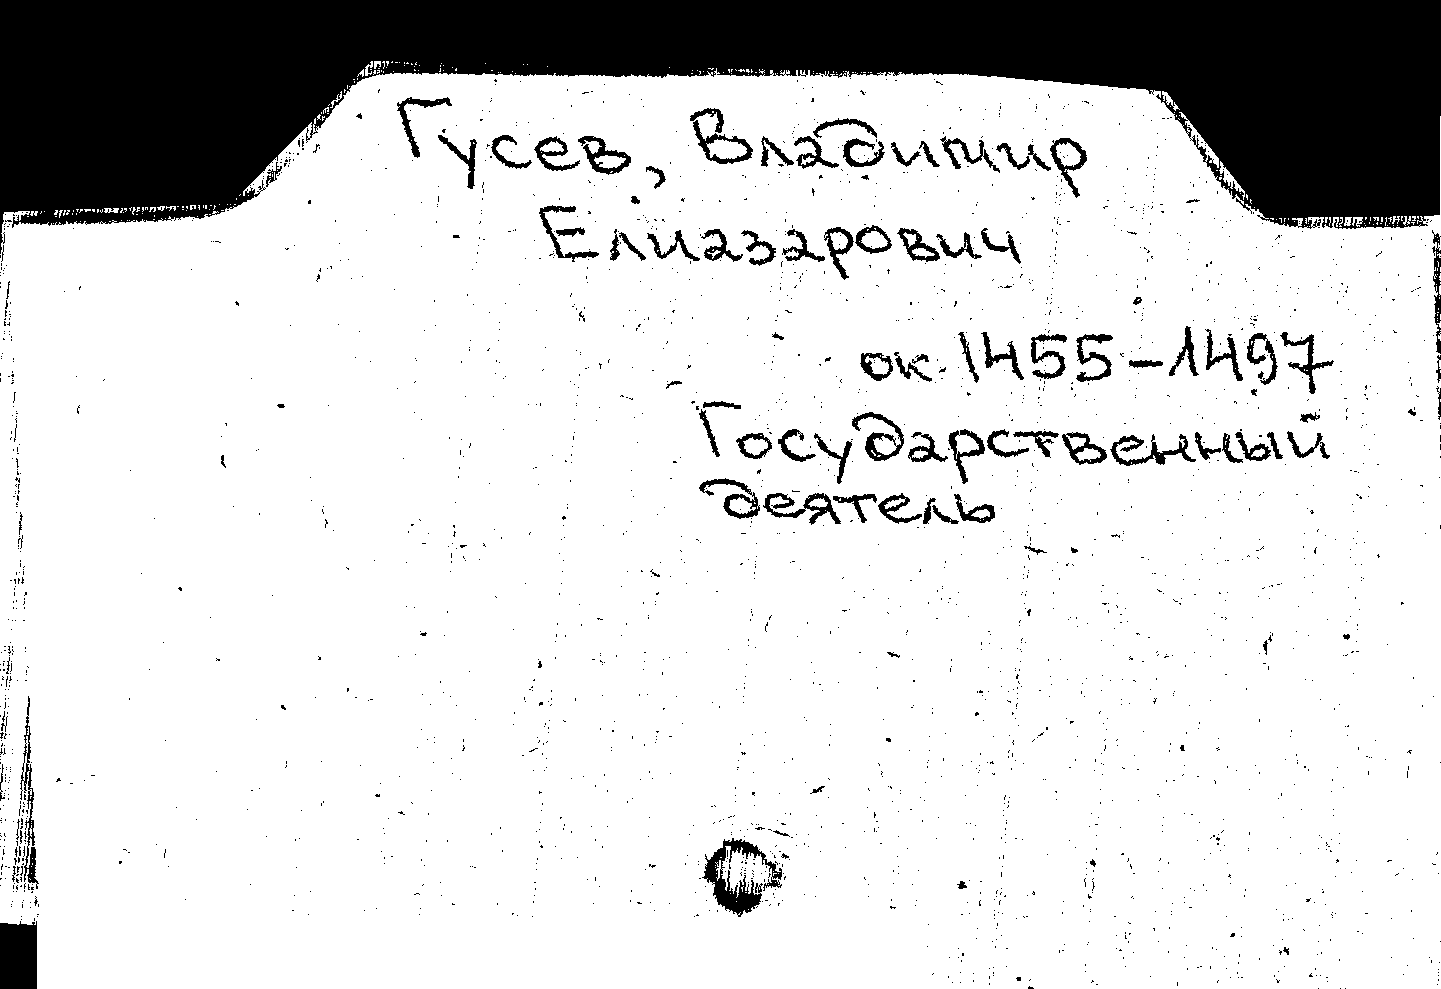 Гусев, Владимир
Елиазарович
ок. 1455-1497
Государственный
деятель